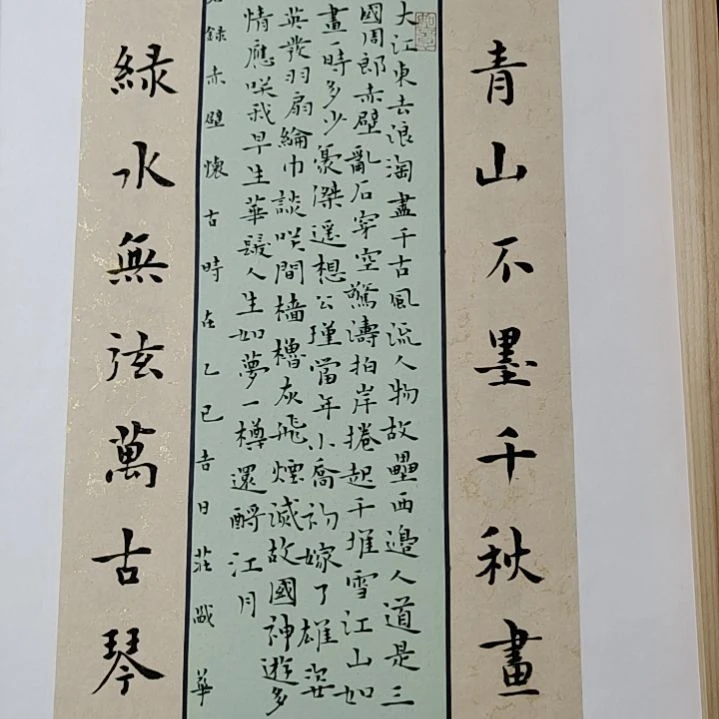 青山不墨千秋畫
大江東去浪淘盡千古風流人物故壘西邊人道是三
國周郎赤壁亂石穿空驚濤拍岸捲起千堆雪江山如
畫一時多少豪傑遥想公瑾當年小喬初嫁了雄姿
英發羽扇綸巾談咲間檣櫓灰飛煙滅故國神遊多
情應咲我早生華髮人生如夢一樽還酹江月
錄赤壁懷古時在乙巳吉日莊華
緑水無弦萬古琴